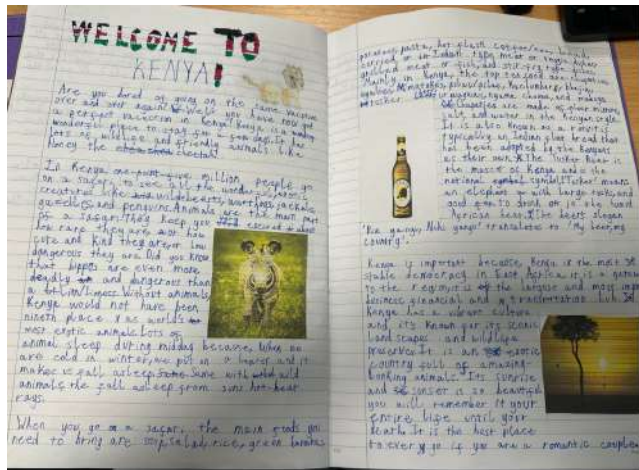 WELCOME TO
KENYA!
Are you bored of going on the same vacation
over and over again? Well you have now got
a perfect vacation in Kenya! Kenya is a
wonderful place to stay for a It has
lots of wildlife and friendly animals like
Honey the cheetah!
In Kenya one point five million people go
on a safari to see all the wonderous exotic
creatures like wildebeests, warthogs, jackals,
gazelles and penguins. Animals are the main part
of a safari. They keep you
how rare they are how
cute and kind they are or how
dangerous they are. Did you know
that hippos are even more
deadly and dangerous than
a lion/lioness. Without animals,
Kenya would not have been
nineth place as world's
most exotic animals. Lots of
animal sleep during midday because, when we
are cold in winter, we put on a heater and it
makes us fall asleep. Same with wild
animals the fall asleep from suns hot heat
rays.
When you go on a safari, the main foods you
need to bring are soup, salad, rice, green
potatoes, pasta, hot
curried or in Indian type meat or veggie
grilled meat or fish, and stir-fry type
Mainly in Kenya, the top ten food are chapatis,
matoke, pilau, mandazi
tusker. or mugacha, nyama choma, and
Chapatis are made of flour mixture,
salt, and water in the Kenyan style.
It is also known as a roti. It is
typically an Indian flat bread that
has been adopted by the Kenyans
as their own. The Tusker River is
the of Kenya and is the
national symbol. Tusker means
an elephant with large tusks, and
good to drink on in the hard
African heat. The beers slogan
'Bia yangu, Nchi yangu' translates to 'My beer, my
country'.
Kenya is important because, Kenya is the most
stable democracy in East Africa, it is a
to the region, it is of the largest and most
business financial and transportation hub.
Kenya has a vibrant culture
and, it's known for its scenic
landscapes and wildlife
preserves. It is an exotic
country full of amazing-
looking animals. Its sunrise
and sunset is so beautiful
you will remember it your
entire life until your
death. It is the best place
to ever go if you are a romantic couple